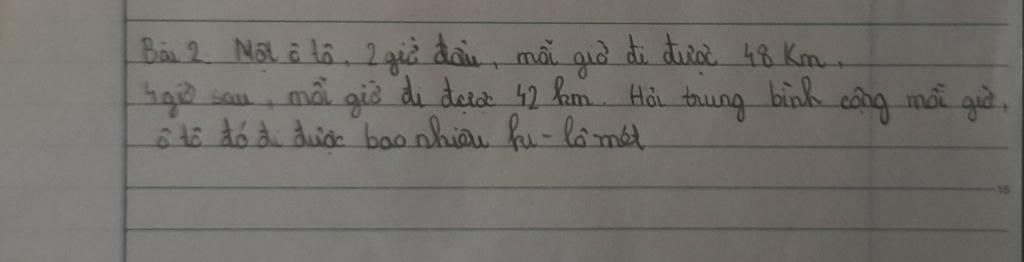 Bài 2. Một ô tô, 2 giờ đầu, mỗi giờ đi được 48 Km,
4 giờ sau, mỗi giờ đi được 42 km. Hỏi trung bình cộng mỗi giờ,
ô tô đó đi được bao nhiêu ki-lô mét
15